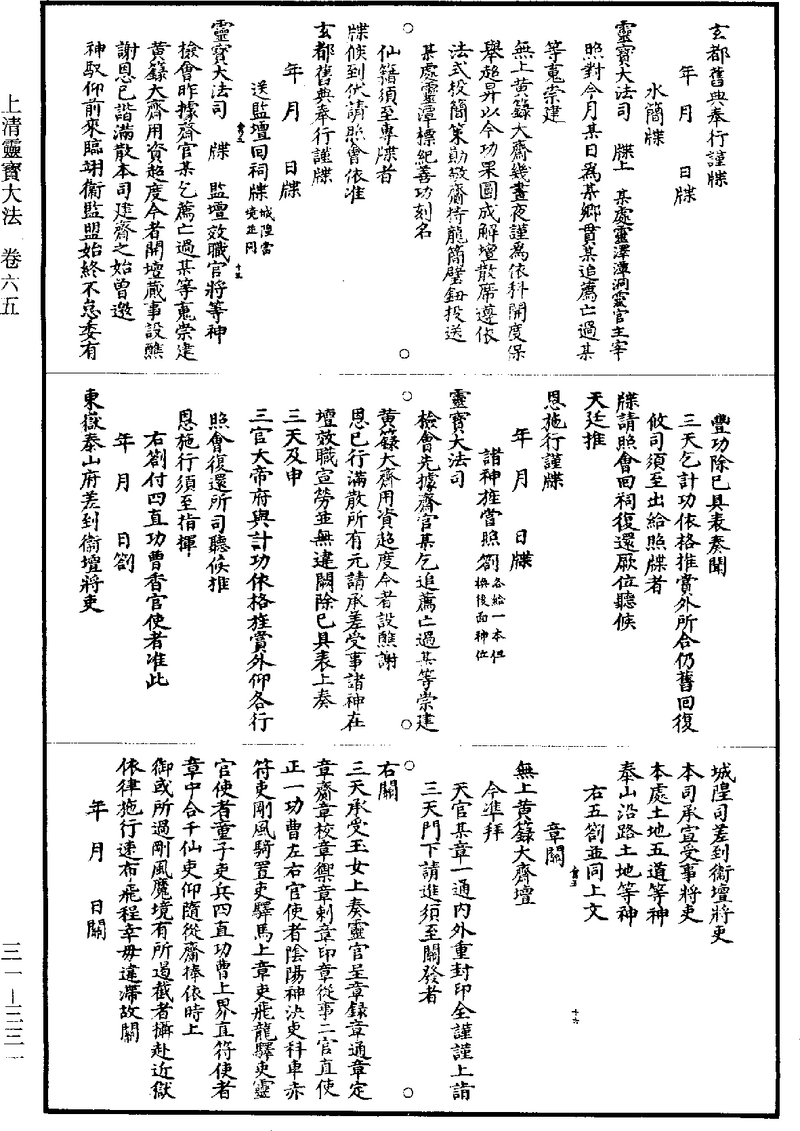 上清靈寶大法 卷六五
玄都舊典奉行謹牒
年 月 日牒
水簡牒
靈寶大法司 牒上 某處靈澤潭洞靈官主宰
照對今月某日為某鄉貫某追薦亡過某
等䰟崇建
無上黃籙大齋幾晝夜謹為依科開度保
舉超昇以今功果圓成解壇散席遵依
法式投簡策勛敬齋持龍簡璧鈕投送
某處靈潭標紀善功刻名
仙籍須至專牒者
牒候到伏請照會依准
玄都舊典奉行謹牒
年 月 日牒
送監壇回祠牒城隍當境並同
靈寶大法司 牒 監壇效職官將等神
檢會昨據齋官某乞薦亡過某等䰟崇建
黃籙大齋用資超度今者開壇蕆事設醮
謝恩已諧滿散本司建齋之始曾邀
神馭仰前來臨翊衛監盟始終不怠委有
豐功除已具表奏聞
三天乞計功依格推賞外所合仍舊回復
攸司須至出給照牒者
牒請照會回祠復還厥位聽候
天廷推
恩施行謹牒
年 月 日牒
諸神旌當照劄各給一本但換後面神位
靈寶大法司
檢會先據齋官某乞追薦亡過某等崇建
黃籙大齋用資超度今者設醮謝
恩已行滿散所有元請承差受事諸神在
壇效職宣勞並無違闕除已具表上奏
三天及申
三官大帝府與計功依格旌賞外仰各行
照會復還所司聽候推
恩施行須至指揮
右劄付四直功曹香官使者准此
年 月 日劄
東嶽泰山府差到衞壇將吏
城隍司差到衞壇將吏
本司承宣受事將吏
本處土地五道等神
泰山沿路土地等神
右五劄並同上文
章關
無上黃籙大齋壇
今準拜
天官某章一通內外重封印全謹謹上詣
三天門下請進須至關發者
右關
三天承受玉女上奏靈官呈章錄章通章定
章齎章校章禦章剌章印章從事二官直使
正一功曹左右官使者陰陽神決吏科車赤
符吏剛風騎置吏驛馬上章吏飛龍驛吏靈
官使者童子吏兵四直功曹上界直符使者
章中合干仙吏仰隨從齎捧依時上
御或所過剛風魔境有所遏截者攝赴近獄
依律施行速布飛程幸毋違滯故關
年 月 日關
三一—三三一